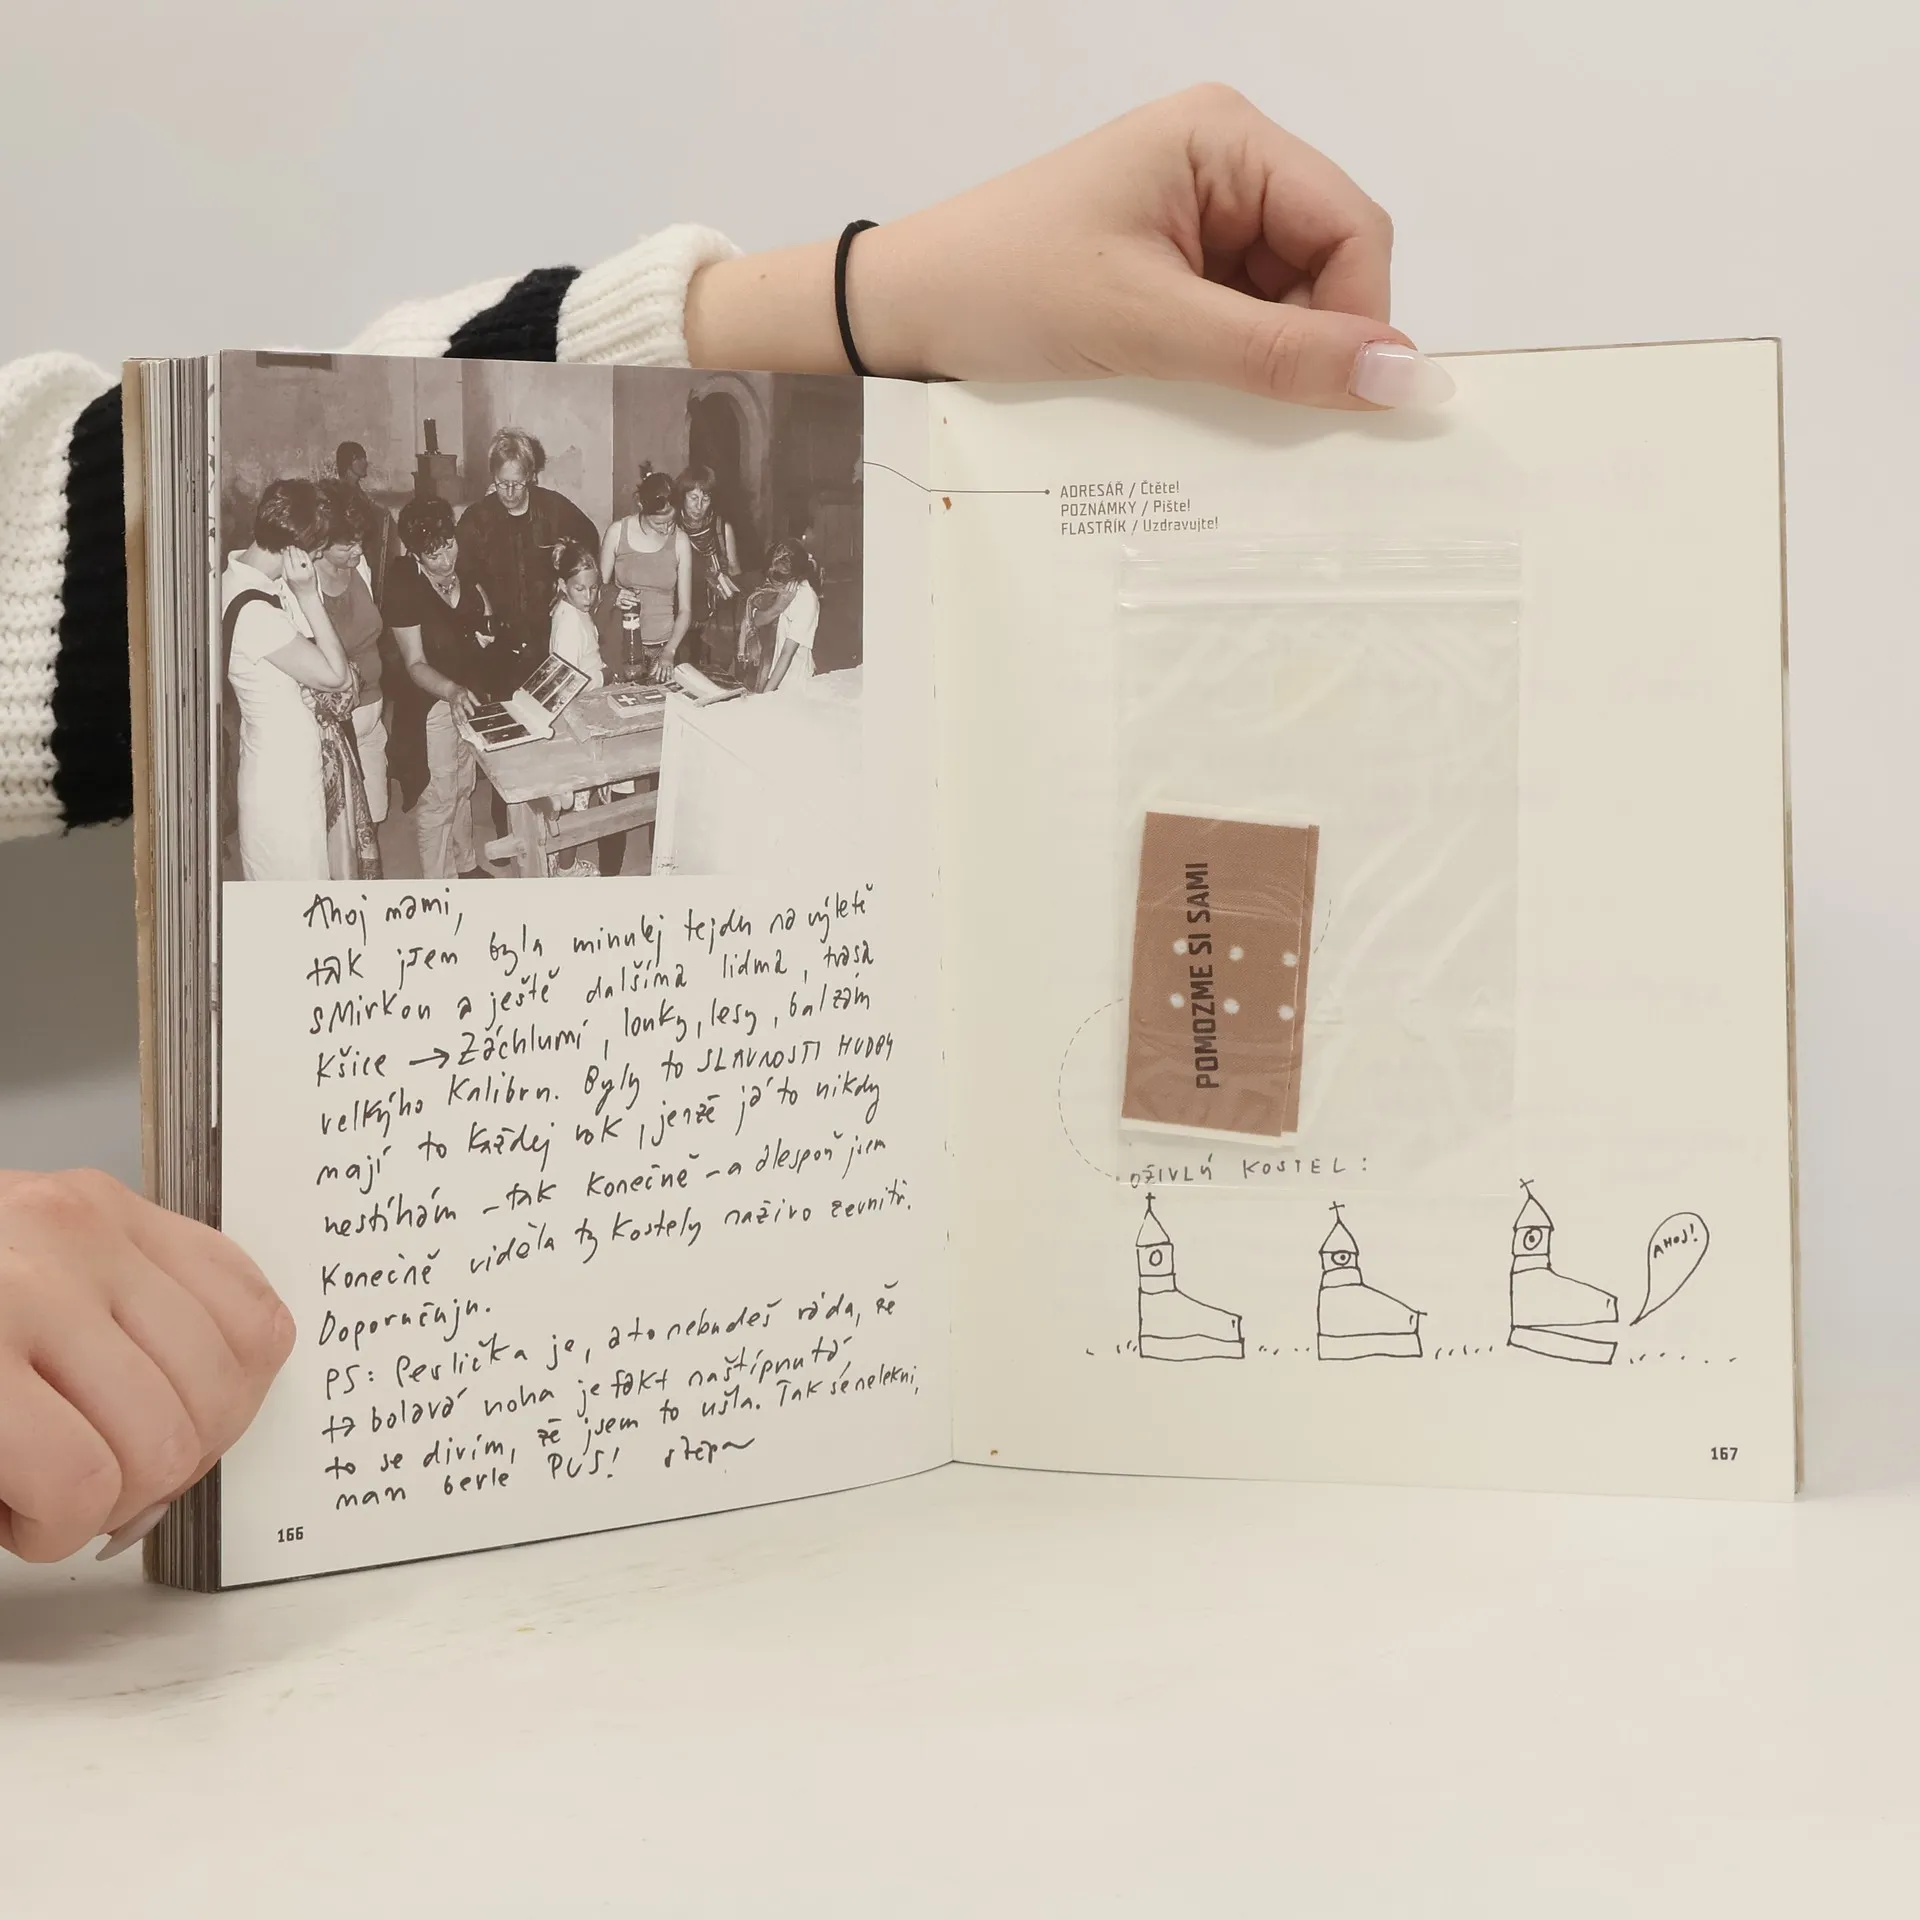 Ahoj mami,
tak jsem byla minulej tejdn na výletě
s Mirkou a ještě dalšíma lidma, trasa
Kšice → Záchlumí, louky, lesy, balzám
velkýho kalibru. Byly to SLAVNOSTI HUDBY
mají to každej rok, jenže já to nikdy
nestíhám – tak konečně – a alespoň jsem
konečně viděla ty kostely naživo zevnitř.
Doporučuju.
PS: Perlička je, a to nebudeš ráda, že
ta bolavá noha je fakt naštípnutá
to se divím, že jsem to ušla. Tak se nelekni,
mam berle PUS! štěpa
166
ADRESÁŘ / Čtěte!
POZNÁMKY / Pište!
FLASTŘÍK / Uzdravujte!
POMOZME SI SAMI
OŽIVLÝ KOSTEL:
AHOJ!
167